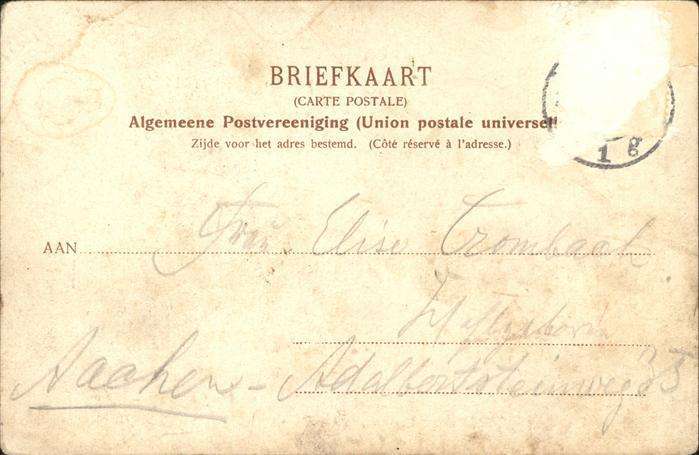 BRIEFKAART
(CARTE POSTALE)
Algemeene Postvereeniging (Union postale universel
Zijde voor het adres bestemd. (Côté réservé à l'adresse.)
1 8
AAN Frau Elise
Aachen - Adalbertsteinweg 33